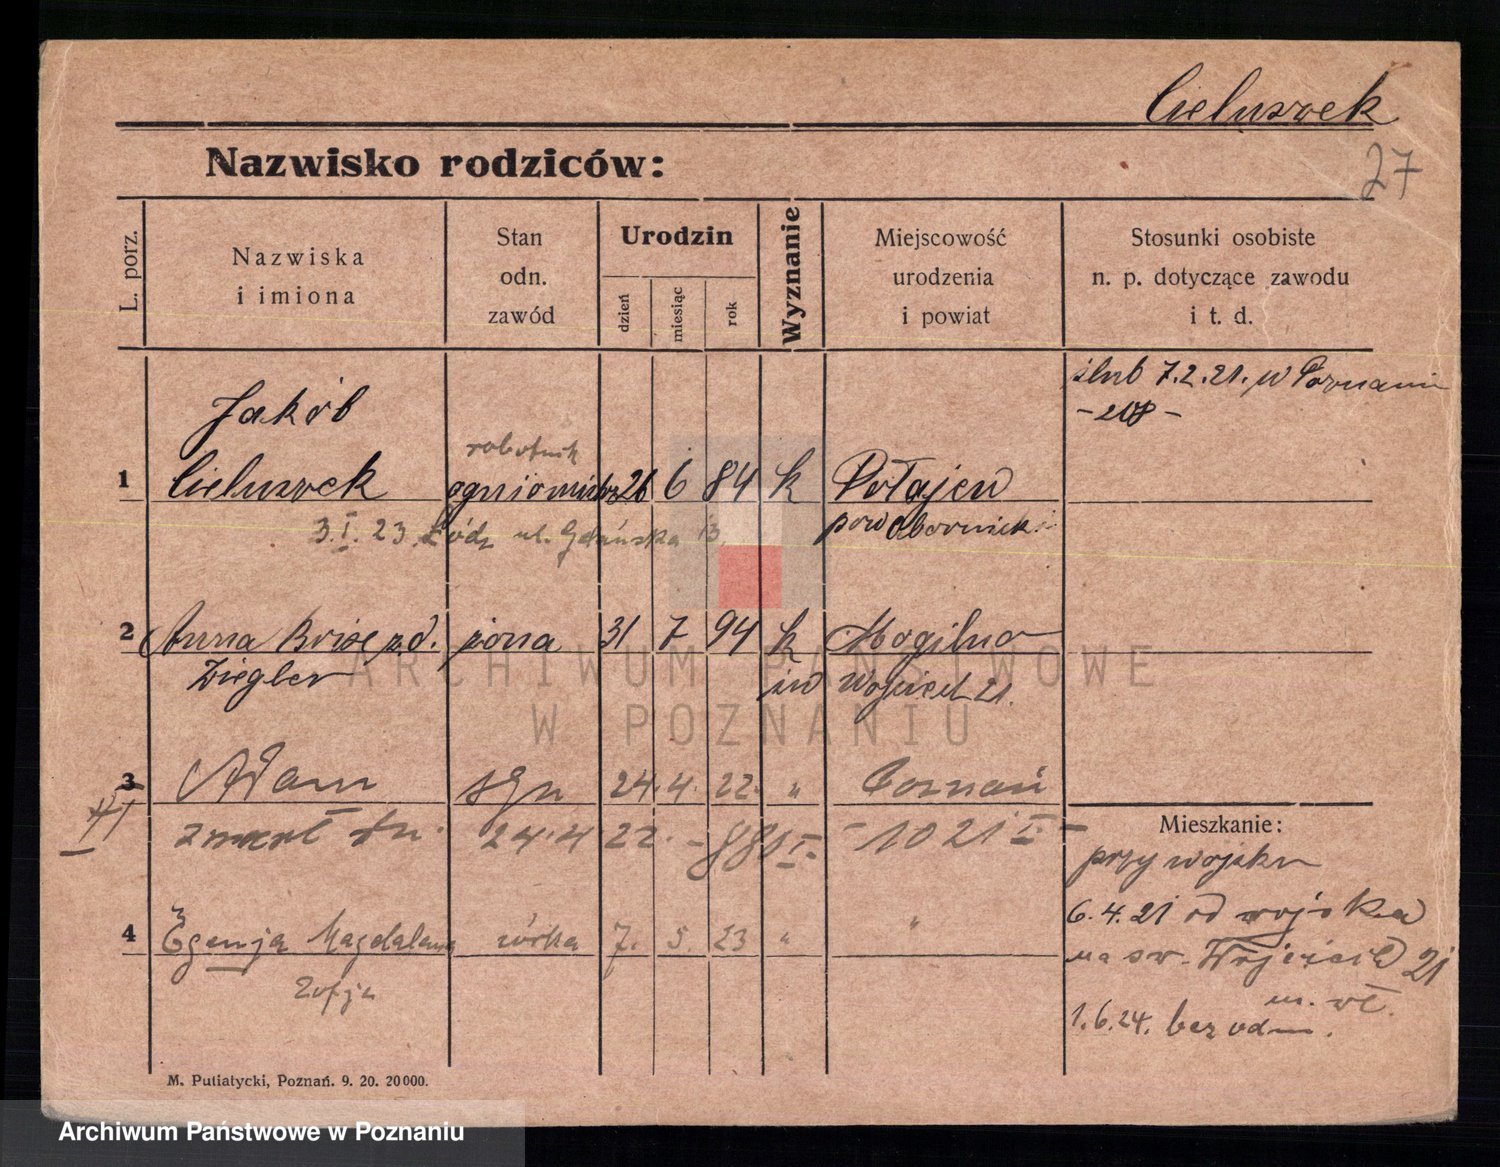 Cieluszek
27
Nazwisko rodziców:
L. porz.
Nazwiska
i imiona
Stan
odn.
zawód
Urodzin
dzień
miesiąc
rok
Wyznanie
Miejscowość
urodzenia
i powiat
Stosunki osobiste
n. p. dotyczące zawodu
i t. d.
ślub 7.2.21. w Poznaniu
Jakób
robotnik
1 Cieluszek 26 6 84 k Połajewo
pow Obornicki
3.I.23. Łódz ul. Gdańska 13
2 Anna z.d. żona 31 7 94 k Mogilno
Ziegler św Wojciech 21.
3 Adam syn 24. 4. 22. " Poznań
zmarł dn. 24.4 22. - 880 I. - 1021 I -
Mieszkanie:
przy wojsku
6.4.21 od wojska
na św. Wojciech 21
m. wł.
1.6.24. bez odm.
4 Eugenja Magdalena córka 7. 5. 23 " "
Zofja
M. Putiatycki, Poznań. 9. 20. 20000.
ARCHIWUM PAŃSTWOWE
W POZNANIU
Archiwum Państwowe w Poznaniu